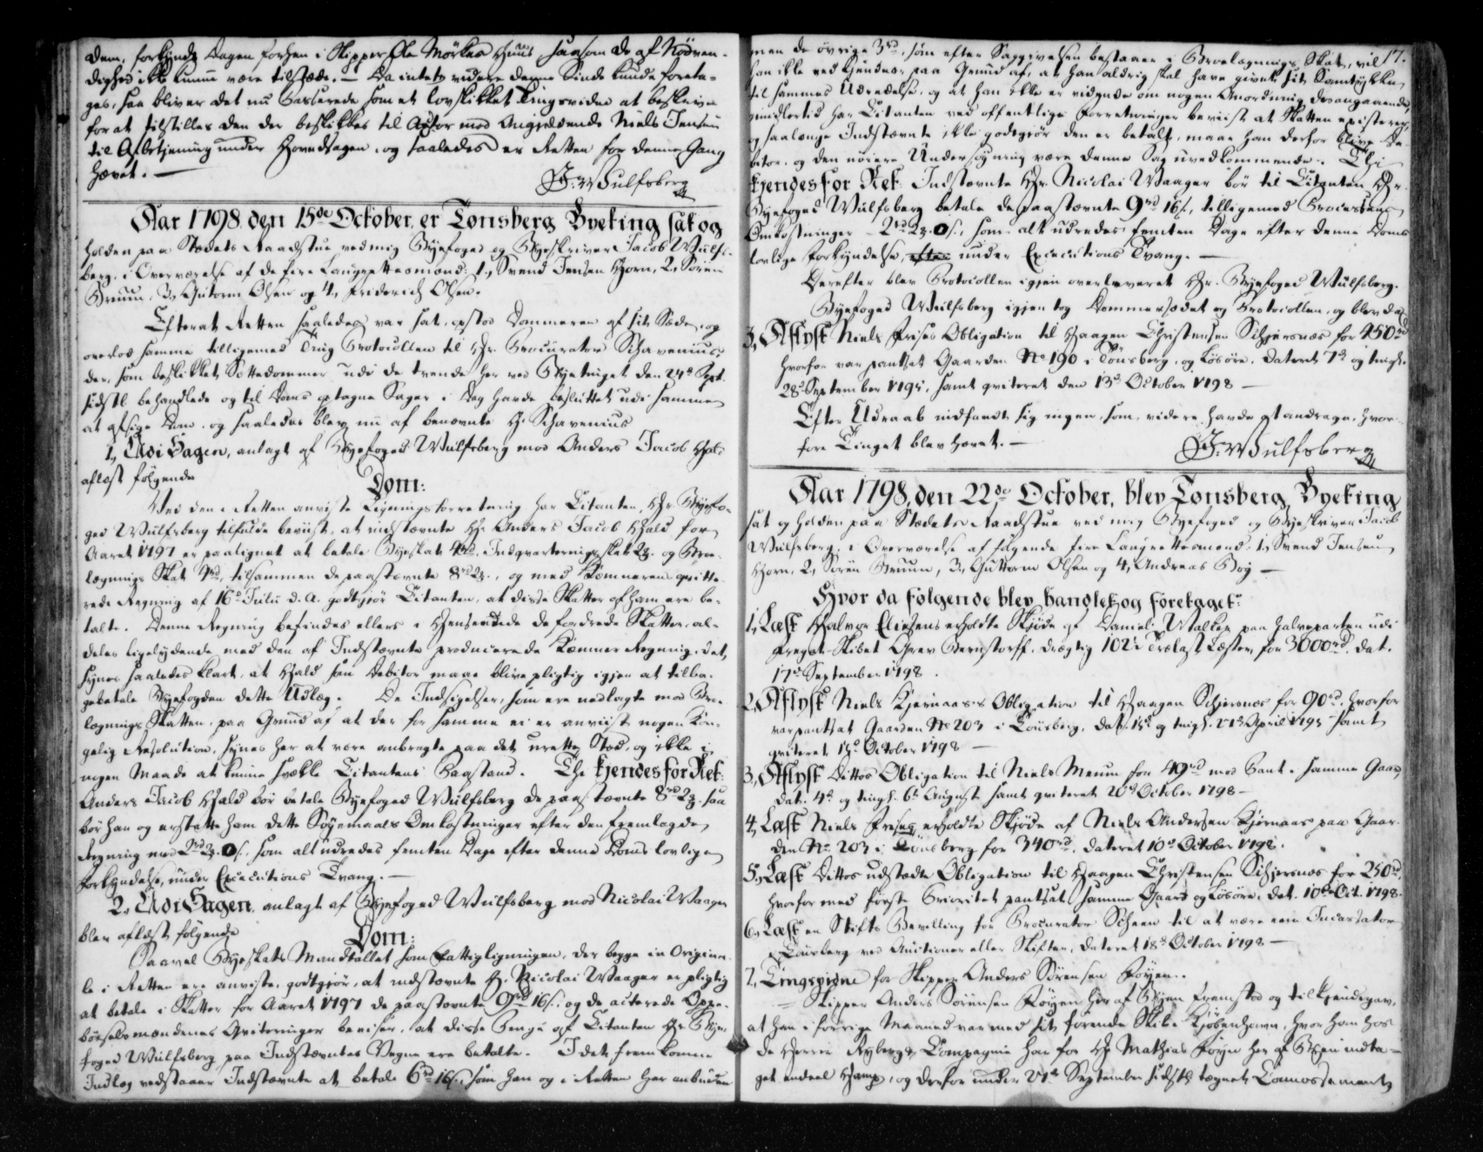 dem, forkyndt Dagen forhen i Skipper Ole Mørkes Huus saasom de af Nødven-
dighed ikke kunde være tilstæde. — Da intet videre denne Sinde kunde foreta-
ges, saa bliver det nu Passerede som et lovskikket Tingsvidne at beskrive
for at tilstilles den der beskikkes til Actor mod Angieldende Niels Jensen
til Afbetjening under Hovedsagen, og saaledes er Retten for denne Gang
hævet. —
J. Wulfsberg
Aar 1798 den 15de October er Tonsberg Byeting sat og
holden paa Stædets Raadstue ved mig Byefoged og Byeskriver Jacob Wulfs-
berg, i Overværelse af de fire Laugrettesmænd: 1, Svend Jensen Hjorn, 2, Søren
Bruun, 3, Guttorm Olsen og 4, Friderich Olsen.
Efterat Retten saaledes var sat, opstod Dommeren af sit Sæde, og
overlod samme tilligemed Ting Protocollen til Hr. Procurator Schavenius
der, som beskikket Sættedommer udi de trende her ved Byetinget den 24de Sept.
sidstl. behandlede og til Doms optagne Sager i Dag havde besluttet udi samme
at afsige Dom. og saaledes blev nu af benævnte Hr. Schavenius
1, Udi Sagen, anlagt af Byefoged Wulfsberg mod Anders Jacob Hald
aflæst følgende
Dom:
Ved den i Retten anviste Ligningsforretning har Citanten, Hr. Byefo-
ged Wulfsberg tilfulde beviist, at indstævnte Hr. Anders Jacob Hald for
Aaret 1797 er paalignet at betale Byeskat 4rd., Indqvarteringsskat 2 og Broe-
lægnings Skat 2rd, tilsammen de paastævnte 8rd 2, og med Kæmnerens qvitte-
rede Regning af 16de Julii d. A. godtgiør Citanten, at disse Skatter af ham ere be-
talte. Denne Regning befindes ellers i Henseende de fordrede Skatter, al-
deles ligelydende med den af Indstævnte producerede Kæmner Regning. Det
synes saaledes klart, at Hald som Debitor maae blive pligtig igjen at tilba-
gebetale Byefogden dette Udlæg. De Indsigelser, som ere nedlagte mod Broe-
lægnings Skatten, paa Grund af at der for samme ei er anviist nogen Kon-
gelig Resolution, synes her at være anbragte paa det urette Sted, og ikke i
nogen Maade at kunne svække Citantens Paastand. Thi kjendes for Ret:
Anders Jacob Hald bør betale Byefoged Wulfsberg de paastævnte 8rd 2. saa
bør han og erstatte ham dette Søgemaals Omkostninger efter den fremlagde
Regning med 2rd 3. 0s., som alt udredes femten Dage efter denne Doms lovlige
Forkyndelse, under Executions Tvang. —
2, Udi Sagen anlagt af Byefoged Wulfsberg mod Nicolai Waager
blev aflæst følgende
Dom:
Saavel Byeskats Mandtallet som Fattigligningen, der begge in Origina-
le i Retten ere anviste, godtgiør, at indstævnte Hr. Nicolai Waager er pligtig
at betale i Skatter for Aaret 1797 de paastævnte 9rd 16s. og de acterede Oppe-
børselsmændenes Qvitteringer beviser, at disse Penge af Citanten Hr. Bye-
foged Wulfsberg paa Indstævntes Vegne ere betalte. I det fremkomne
Indlæg vedstaaer Indstævnte at betale 6rd 16s., som han og i Retten har anbuden
17.
men de øvrige 3rd, som efter Sagivelsen bestaaer i Broelægnings Skat, vil
han ikke vedkjendes, paa Grund af, at han aldrig skal have givet sit Samtykke
til sammes Udredelse, og at han ikke er vidende om nogen Anordning desangaaende
imidlertid har Citanten ved offentlige Forretninger beviist at Skatten existerer,
og saalænge Indstævnte ikke godtgiør den er betalt, maae han derfor blive De-
bitor, og den nøiere Undersøgning være denne Sag uvedkommende. Thi
kjendes for Ret: Indstævnte Hr. Nicolai Waager bør til Citanten Hr.
Byefoged Wulfsberg betale de paastævnte 9rd 16s., tilligemed Processens
Omkostninger 2rd 3. 0s., som alt udredes femten Dage efter denne Doms
lovlige Forkyndelse, efter under Executions Tvang. —
Derefter blev Protocollen igjen overleveret Hr. Byefoged Wulfsberg.
Byefoged Wulfsberg igjen tog Dommersædet og Protocollen, og blev da
3, Aflyst Niels Freses Obligation til Haagen Christensen Schjersnæs for 450rd
hvorfor var pantsat Gaarden No 190 i Tonsberg, og Løsøre. dateret 7de og tingl.
28de September 1795, samt qvitteret den 13de October 1798 —
Efter Udraab indfandt sig ingen, som videre havde at andrage, hvor-
fore Tinget blev hævet. —
J. Wulfsberg
Aar 1798, den 22de October, blev Tonsberg Byeting
sat og holden paa Stædets Raadstue ved mig Byefoged og Byeskriver Jacob
Wulfsberg, i Overværelse af følgende fire Laugrettesmænd: 1, Svend Jensen
Hjorn, 2, Søren Bruun, 3, Guttorm Olsen og 4, Andreas Bøg —
Hvor da følgende blev handlet og foretaget:
1, Læst Halvor Eliesens erholdte Skjøde af Daniel Walker paa Halveparten udi
Fregat-Skibet Grev Bernstorff, drægtig 102½ Trælast Læster, for 3000rd, dat.
17de September 1798.
2, Aflyst Niels Kjernaas's Obligation til Haagen Schjersnæs for 90rd, hvorfor
var pantsat Gaarden No 203 i Tønsberg, dat. 15de og tingl. 21de April 1795 samt
qvitteret 15de October 1798 —
3, Aflyst Dittos Obligation til Niels Meum for 49rd mod Pant i samme Gaard
dat. 4de og tingl. 6te August samt qvitteret 20de October 1798 —
4, Læst Niels Freses erholdte Skjøde af Niels Andersen Kjernaas paa Gaar-
den No 203 i Tonsberg for 340rd, dateret 10de October 1798.
5, Læst Dittos udstædte Obligation til Haagen Christensen Schjersnæs for 250rd
hvorfor med første Prioritet pantsat samme Gaard og Løsøre. dat. 10de Oct. 1798.
6, Læst en Stifts Bevilling for Procurator Scheen til at være een Incassator
i Tønsberg ved Auctioner eller Skifter, dateret 18de October 1798 —
7, Tingsvidne for Skipper Anders Sørensen Føyen.
Skipper Anders Sørensen Føyen her af Byen fremstod og tilkjendegav,
at han i forrige Maaned var med sit førende Skib i Kjøbenhavn, hvor han hos
de Herrer Ryberg & Compagnie har for Hr. Mathias Føyn her af Byen indta-
get endeel Hamp, og derfor under 21de September sidstl. tegnet Connossement,